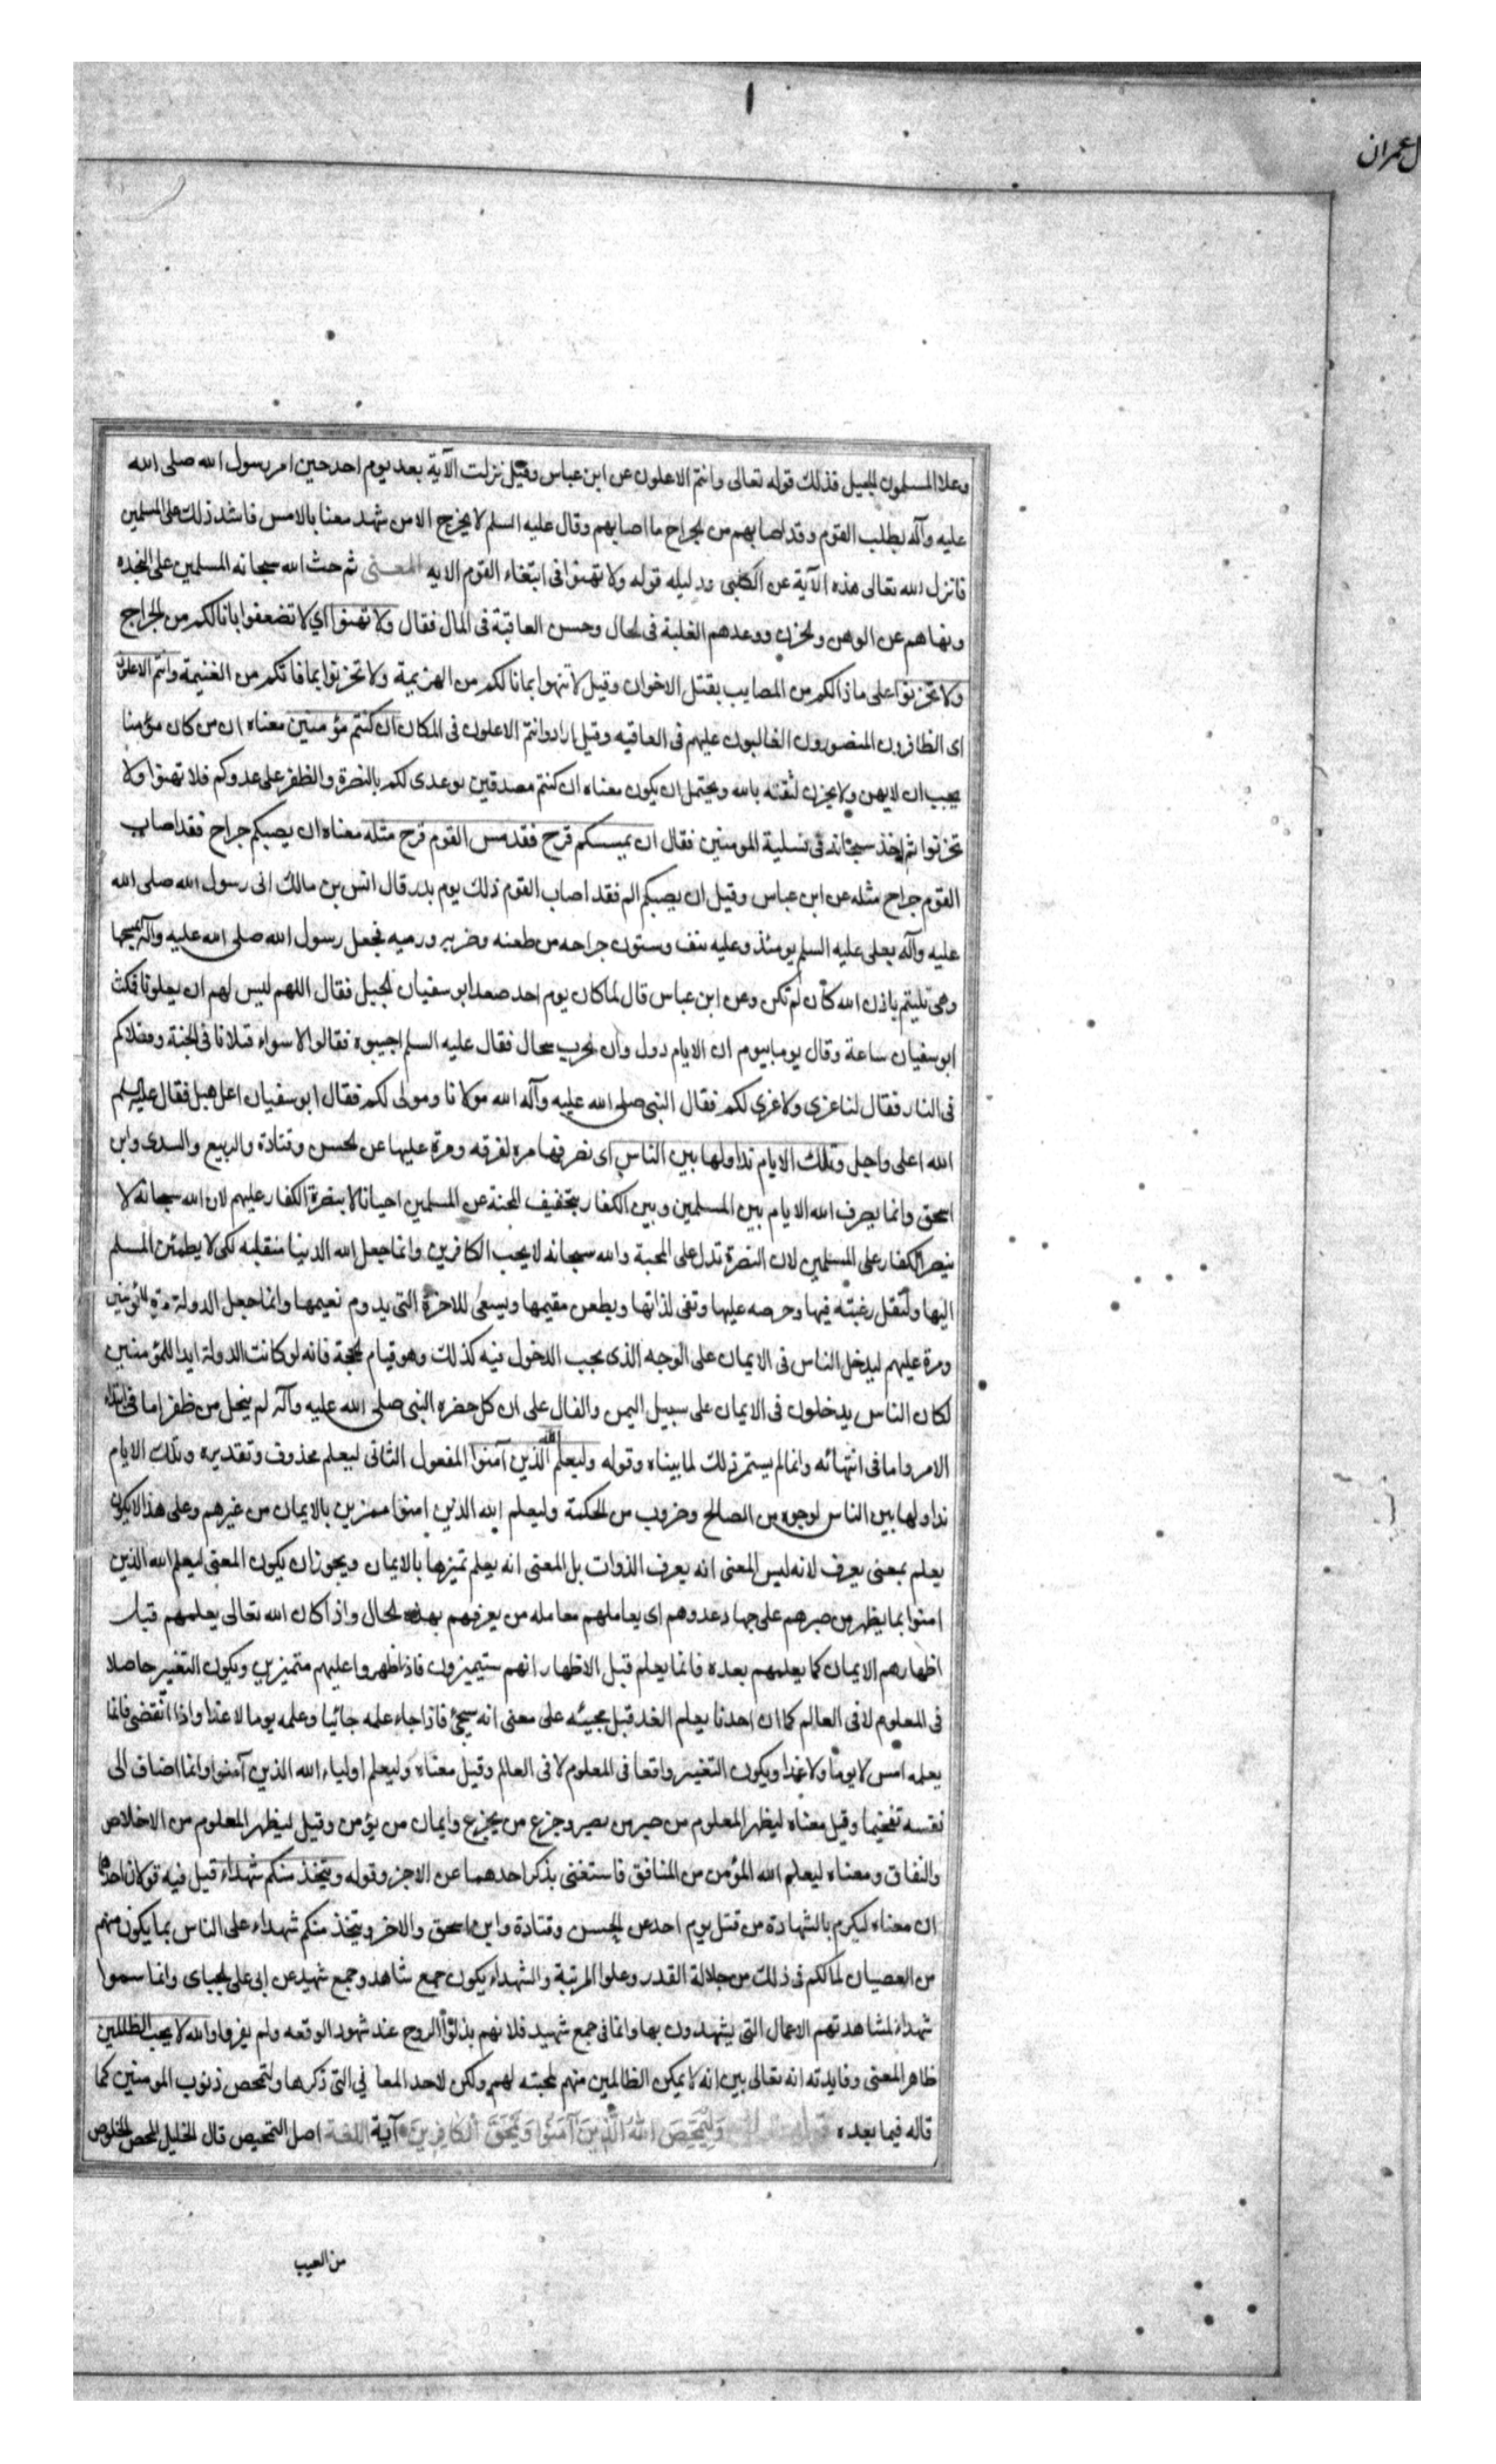 ل عمران
وعلا المسلمون الجبل فذلك قوله تعالى وانتم الاعلون عن ابن عباس وقيل نزلت الآية بعد يوم احد حين امر رسول الله صلى الله
عليه وآله بطلب القوم وقد اصابهم من الجراح ما اصابهم وقال عليه السلم لا يخرج الا من شهد معنا بالامس فاشتد ذلك على المسلمين
فانزل الله تعالى هذه الآية عن الكلبى ودليله قوله ولا تهنوا فى ابتغاء القوم الايه المعنى ثم حث الله سبحانه المسلمين على النجده
ونهاهم عن الوهن والحزن ووعدهم الغلبة فى الحال وحسن العاقبة فى المال فقال ولا تهنوا اي لا تضعفوا بما نالكم من الجراح
ولا تحزنوا على ما نالكم من المصايب بقتل الاخوان وقيل لا تهنوا بما نالكم من الهزيمة ولا تحزنوا بما فاتكم من الغنيمة وانتم الاعلون
اى الظافرون المنصورون الغالبون عليهم فى العاقبه وقيل اراد وانتم الاعلون فى المكان ان كنتم مؤمنين معناه ان من كان مؤمنا
يجب ان لا يهن ولا يحزن لثقته بالله ويحتمل ان يكون معناه ان كنتم مصدقين بوعدى لكم بالنصرة والظفر على عدوكم فلا تهنوا ولا
تحزنوا ثم اخذ سبحانه فى تسلية المومنين فقال ان يمسسكم قرح فقد مس القوم قرح مثله معناه ان يصبكم جراح فقد اصاب
القوم جراح مثله عن ابن عباس وقيل ان يصبكم الم فقد اصاب القوم ذلك يوم بدر قال انس بن مالك اتى رسول الله صلى الله
عليه وآله بعلى عليه السلم يومئذ وعليه نيف وستون جراحه من طعنه وضربه ورميه فجعل رسول الله صلى الله عليه وآله يمسحها
وهى تلتيم باذن الله كأن لم تكن وعن ابن عباس قال لما كان يوم احد صعد ابو سفيان الجبل فقال اللهم ليس لهم ان يعلونا فمكث
ابو سفيان ساعة وقال يوما بيوم ان الايام دول وان الحرب سجال فقال عليه السلم اجيبوه فقالوا لا سواء قتلانا فى الجنة وقتلاكم
فى النار فقال لنا عزى ولا عزي لكم فقال النبى صلى الله عليه وآله الله مولانا ولا مولى لكم فقال ابو سفيان اعل هبل فقال عليه السلم
الله اعلى واجل وتلك الايام نداولها بين الناس اى نصرفها مره لفرقه ومرة عليها عن الحسن وقتادة والربيع والسدى وابن
اسحق وانما يصرف الله الايام بين المسلمين وبين الكفار بتخفيف المحنة عن المسلمين احيانا لا بنصرة الكفار عليهم لان الله سبحانه لا
ينصر الكفار على المسلمين لان النصرة تدل على المحبة والله سبحانه لا يحب الكافرين وانما جعل الله الدينا متقلبه لكى لا يطمئن المسلم
اليها ولتقل رغبته فيها وحرصه عليها وتفنى لذاتها ويظعن مقيمها ويسعى للاخرة التى يدوم نعيمها وانما جعل الدولة مرة للمؤمنين
ومرة عليهم ليدخل الناس فى الايمان على الوجه الذى يجب الدخول فيه كذلك وهو قيام الحجة فانه لو كانت الدولة ابدا للمؤمنين
لكان الناس يدخلون فى الايمان على سبيل اليمن والفال على ان كل حضره النبى صلى الله عليه وآله لم يخل من ظفر اما فى ابتداء
الامر واما فى انتهائه وانما لم يستمر ذلك لما بيناه وقوله وليعلم الله الذين آمنوا المفعول الثانى ليعلم محذوف وتقديره وتلك الايام
نداولها بين الناس لوجوه من الصالح وضروب من الحكمة وليعلم الله الذين امنوا مميزين بالايمان من غيرهم وعلى هذا لا يكون
يعلم بمعنى يعرف لانه ليس المعنى انه يعرف الذوات بل المعنى انه يعلم تميزها بالايمان ويجوز ان يكون المعنى ليعلم الله الذين
امنوا بما يظهر من صبرهم على جهاد عدوهم اى يعاملهم معامله من يعرفهم بهذه الحال واذا كان الله تعالى يعلمهم قبل
اظهارهم الايمان كما يعلمهم بعده فانما يعلم قبل الاظهار انهم ستيميزون فاذا اظهروا عليهم متميزين ويكون التغير حاصلا
فى المعلوم لا فى العالم كما ان احدنا يعلم الغد قبل مجيئه على معنى انه سيجئ فاذا جاء علمه جائيا وعلمه يوما لا غدا واذا انقضى فانما
يعلمه امس لا يوما ولا غدا ويكون التغير واقعا فى المعلوم لا فى العالم وقيل معناه وليعلم اولياء الله الذين آمنوا وانما اضاف الى
نفسه تفخيما وقيل معناه ليظهر المعلوم من صبر من يصبر وجزع من يجزع وايمان من يؤمن وقيل ليظهر المعلوم من الاخلاص
والنفاق ومعناه ليعلم الله المؤمن من المنافق فاستغنى بذكر احدهما عن الاخر وقوله ويتخذ منكم شهداء قيل فيه قولان احدهما
ان معناه ليكرم بالشهادة من قتل يوم احد عن الحسن وقتادة وابن اسحق والاخر ويتخذ منكم شهداء على الناس بما يكون منهم
من العصيان لما لكم فى ذلك من جلالة القدر وعلو المرتبة والشهداء يكون جمع شاهد وجمع شهيد عن ابى على الجبائى وانما سموا
شهداء لمشاهدتهم الاعمال التى يشهدون بها وانما فى جمع شهيد فلانهم بذلوا الروح عند شهود الوقعه ولم يفروا والله لا يحب الظالمين
ظاهر المعنى وفايدته انه تعالى بين انه لا يمكن الظالمين منهم لمحبته لهم ولكن لاحد المعا نى التى ذكرها ولتمحص ذنوب المومنين كما
قاله فيما بعده وَلِيُمَحِّصَ اللهُ الَّذِينَ آمَنُوا وَيَمْحَقَ الْكَافِرِينَ آية اللغة اصل التمحيص قال الخليل المحص الخلوص
من العيب